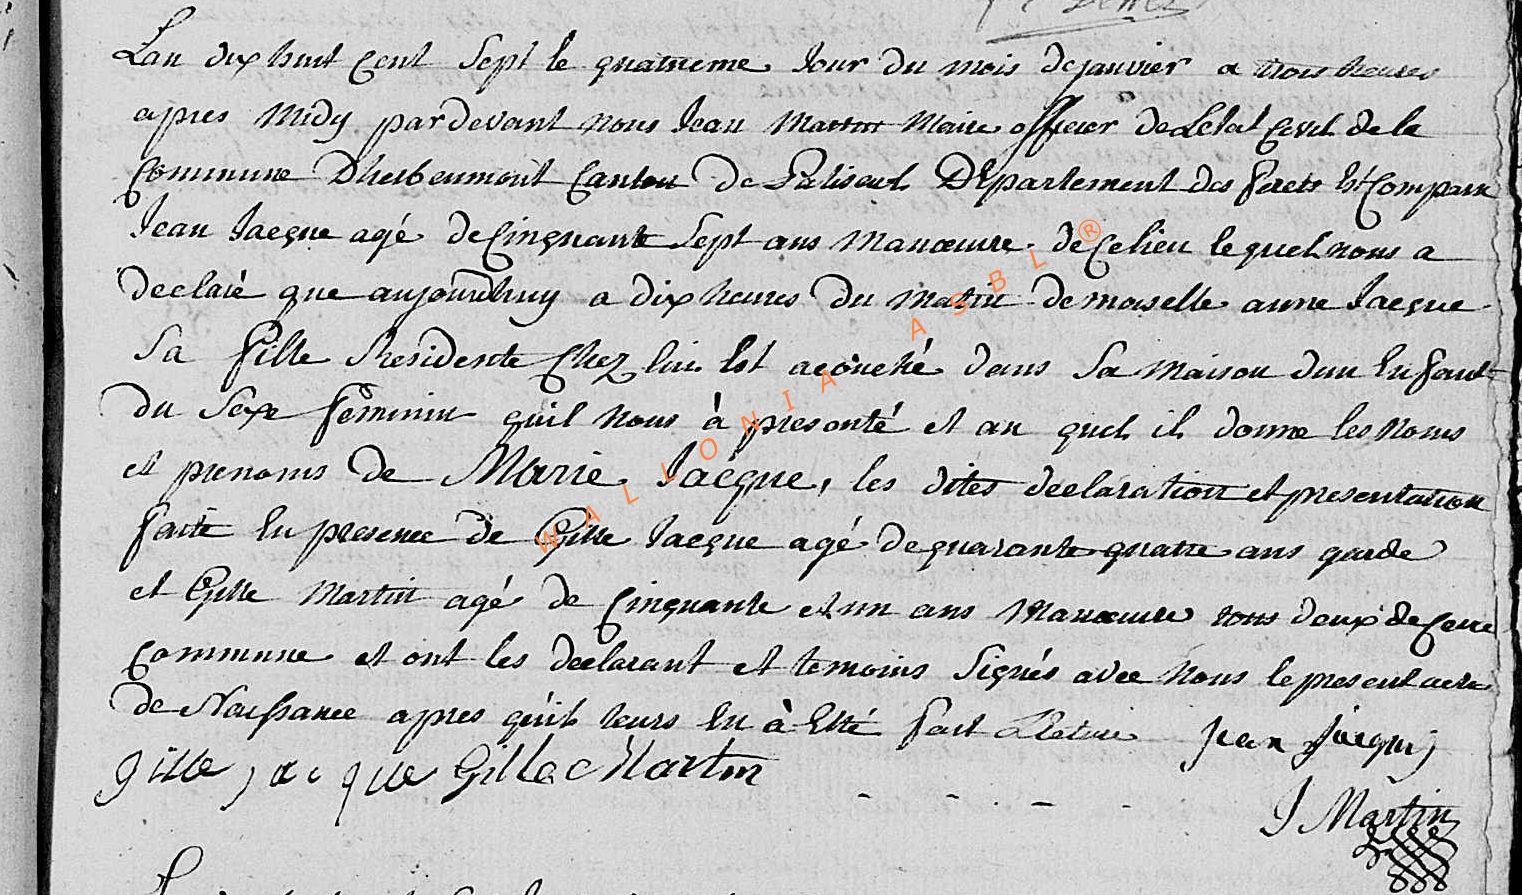 Lan dix huit cent sept le quatrieme jour du mois de janvier a trois heures
apres midy pardevant nous Jean Martin Maire officier de Letat Civil de la
Commune Dherbeumont Canton de Paliseul Département des forets Est Comparu
Jean Jacque agé de Cinquante Sept ans Manœuvre de Ce lieu le quel nous a
declaré que aujourdhuy a dix heures du matin demoiselle anne Jacque
Sa fille Residente Chez lui Est acouché dans Sa Maison dun Enfant
du Sexe féminin quil nous à presenté et au quel il donne les noms
et prenoms de Marie Jacque, les dites declaration et presentation
faite En presence de Gille Jacque agé de quarante quatre ans garde
et Gille Martin agé de Cinquante et un ans Manœuvre tous deux de Cette
Commune et ont les declarant et temoins Signés avec Nous le present acte
de Naissance apres quil leurs En à Eté fait Jean Jacque
gille jacque Gille Martin
J Martin
WALLONIA ASBL ®